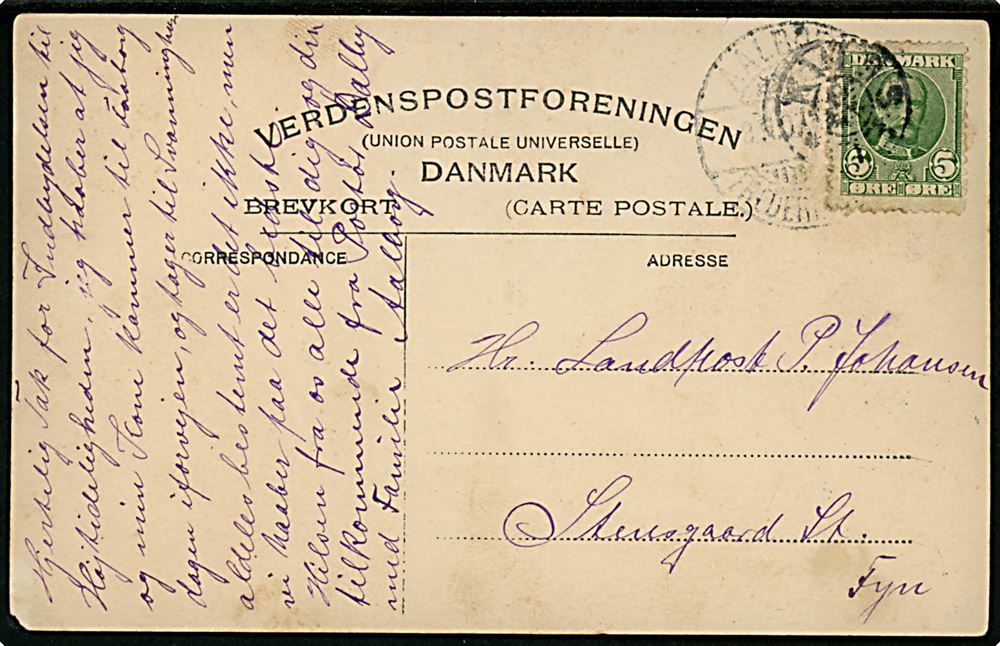 VERDENSPOSTFORENINGEN
(UNION POSTALE UNIVERSELLE)
DANMARK
BREVKORT (CARTE POSTALE.)
CORRESPONDANCE
ADRESSE
DANMARK
5 5
ØRE ØRE
Hr. Landpost P. Johansen
Stensgaard St.
Fyn
Hjertelig Tak for Indbydelsen til
Højtideligheden, jeg haaber at jeg
og min Kone kommer til Faaborg
dagen iforvejen, og tager til Svanninge
aldeles bestemt er det ikke, men
vi haaber paa det bedste.
Hilsen fra os alle til dig og din
tilkommende fra Postb.
med Familie Aalborg.